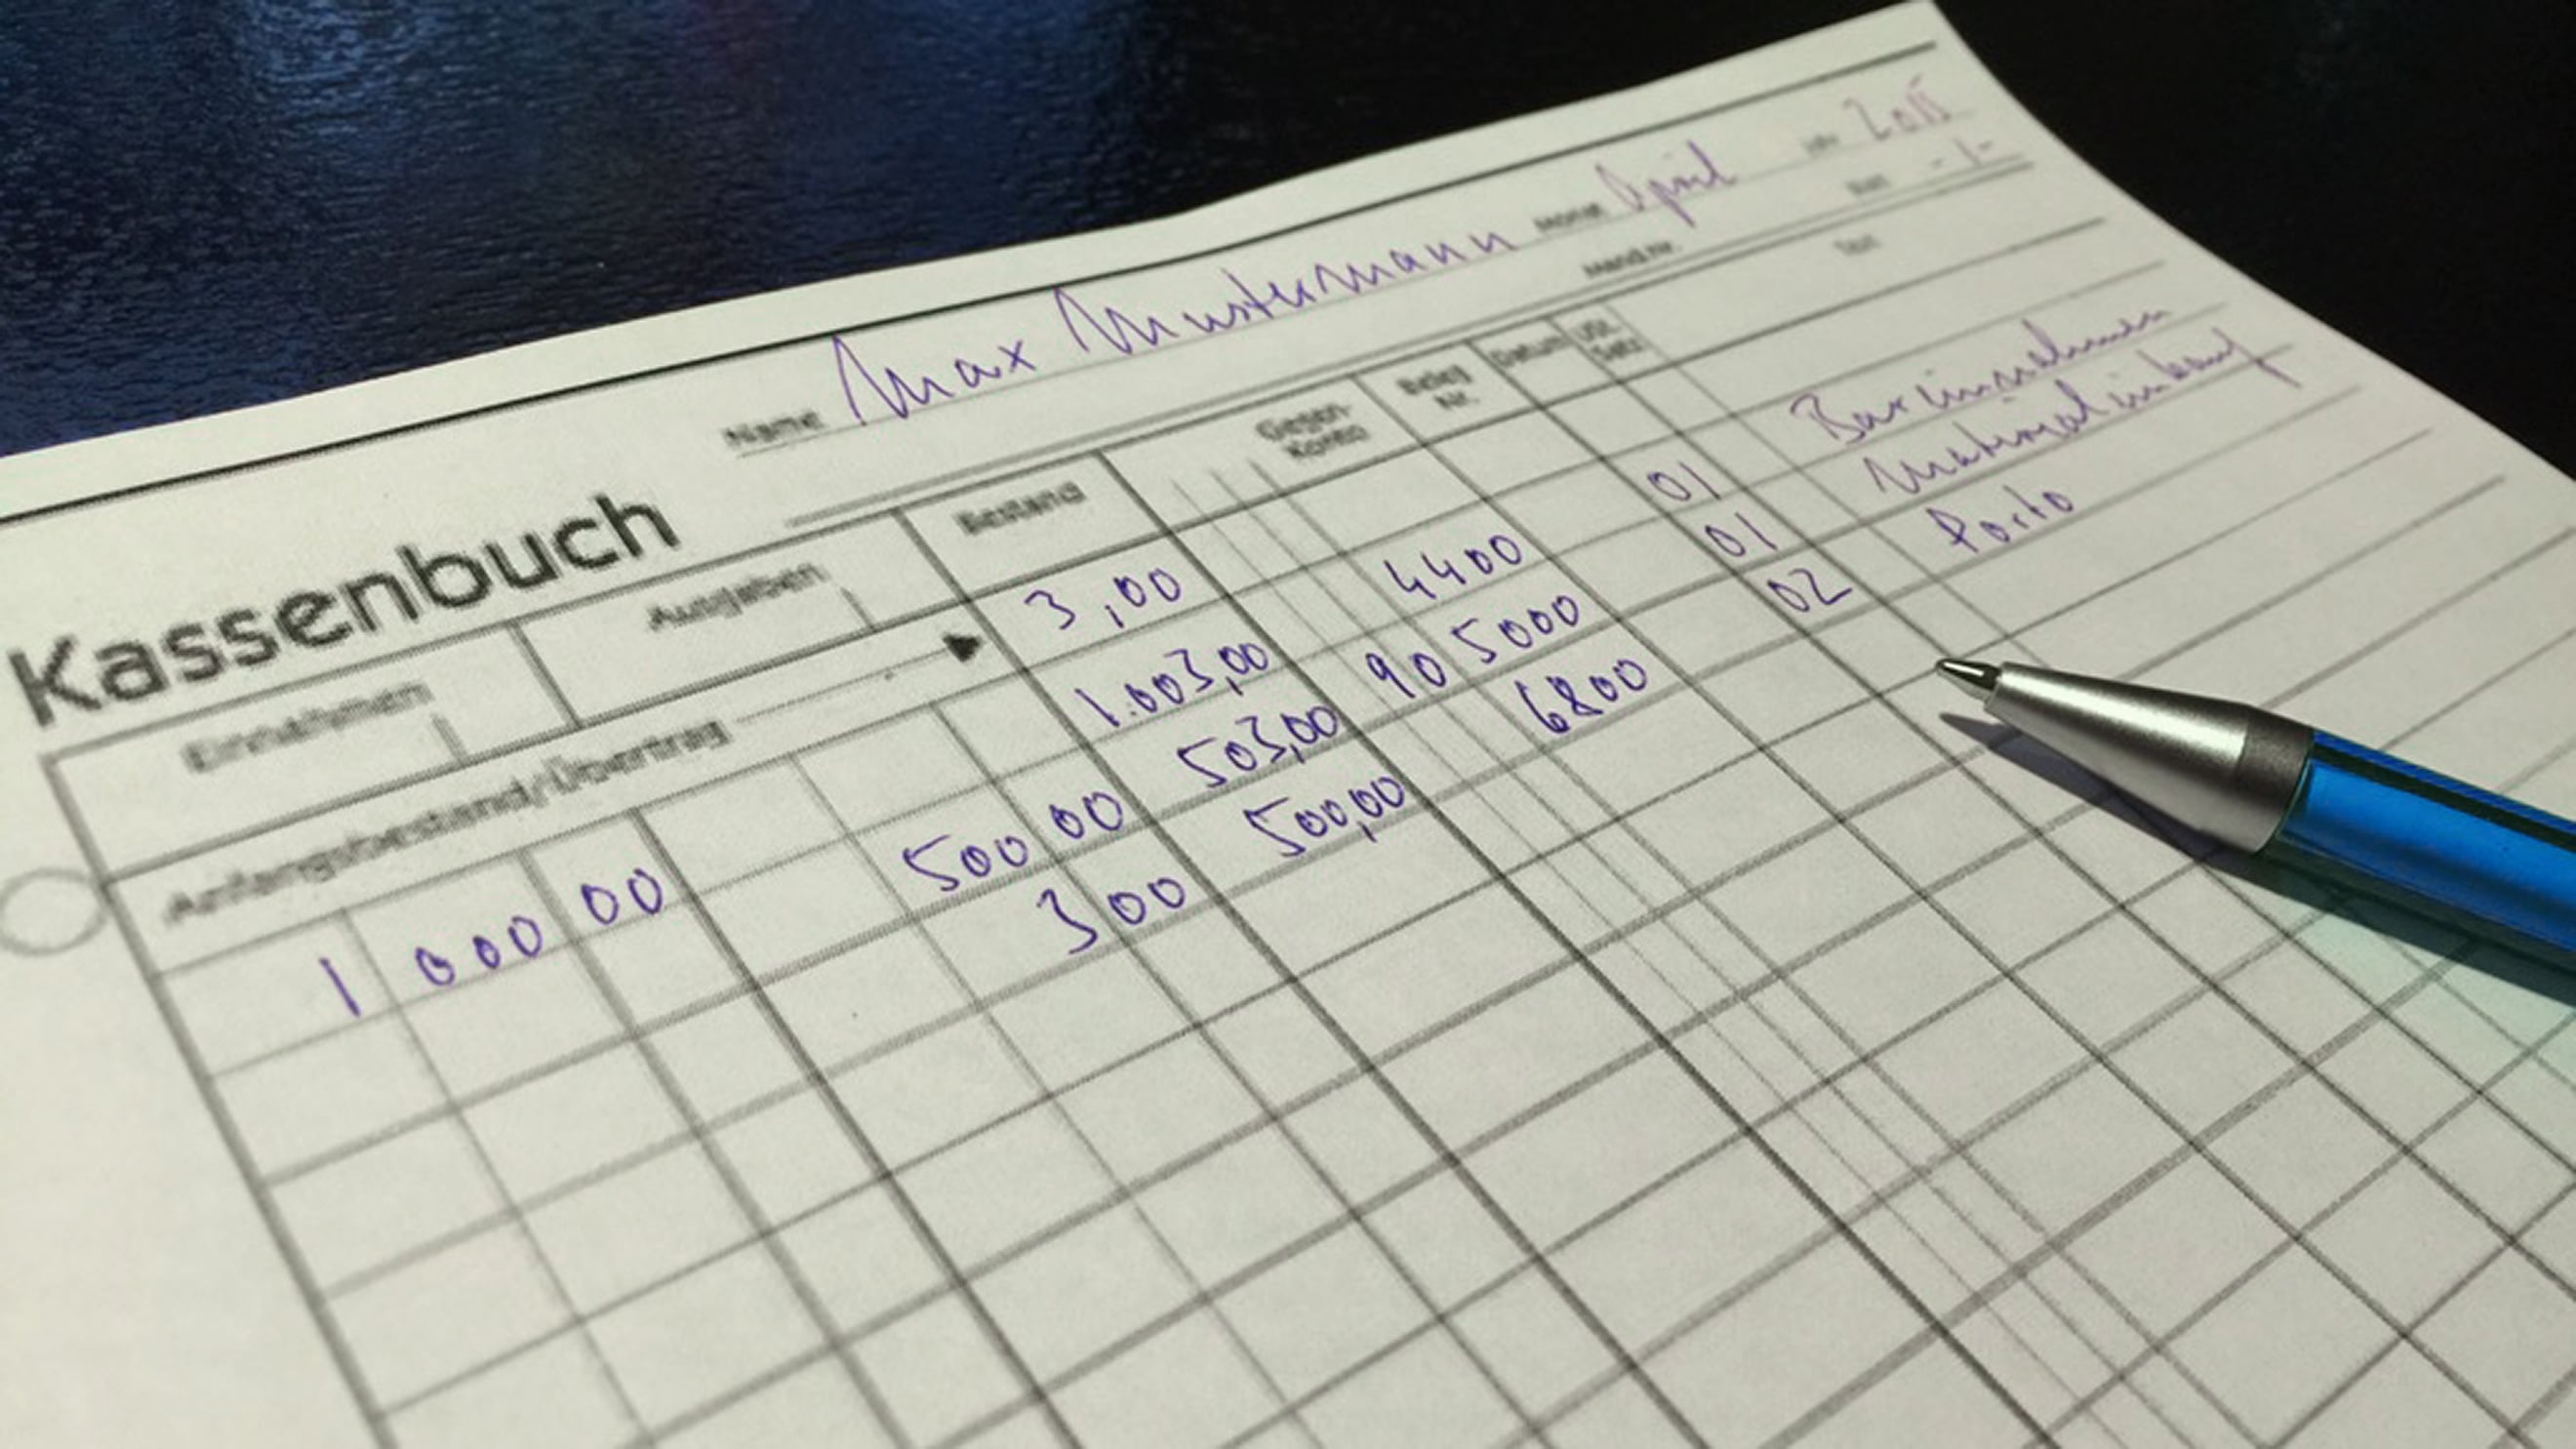 Name Max Mustermann Monat April Jahr 2015
Kassenbuch Mand.nr. Blatt -1-
Einnahmen Ausgaben Bestand Gegen-Konto Beleg Nr. Datum USt. Satz Text
Anfangsbestand/Übertrag 3,00
1 000 00 1.003,00 4400 01 Bareinnahmen
500 00 503,00 90 5000 01 Materialeinkauf
3 00 500,00 6800 02 Porto